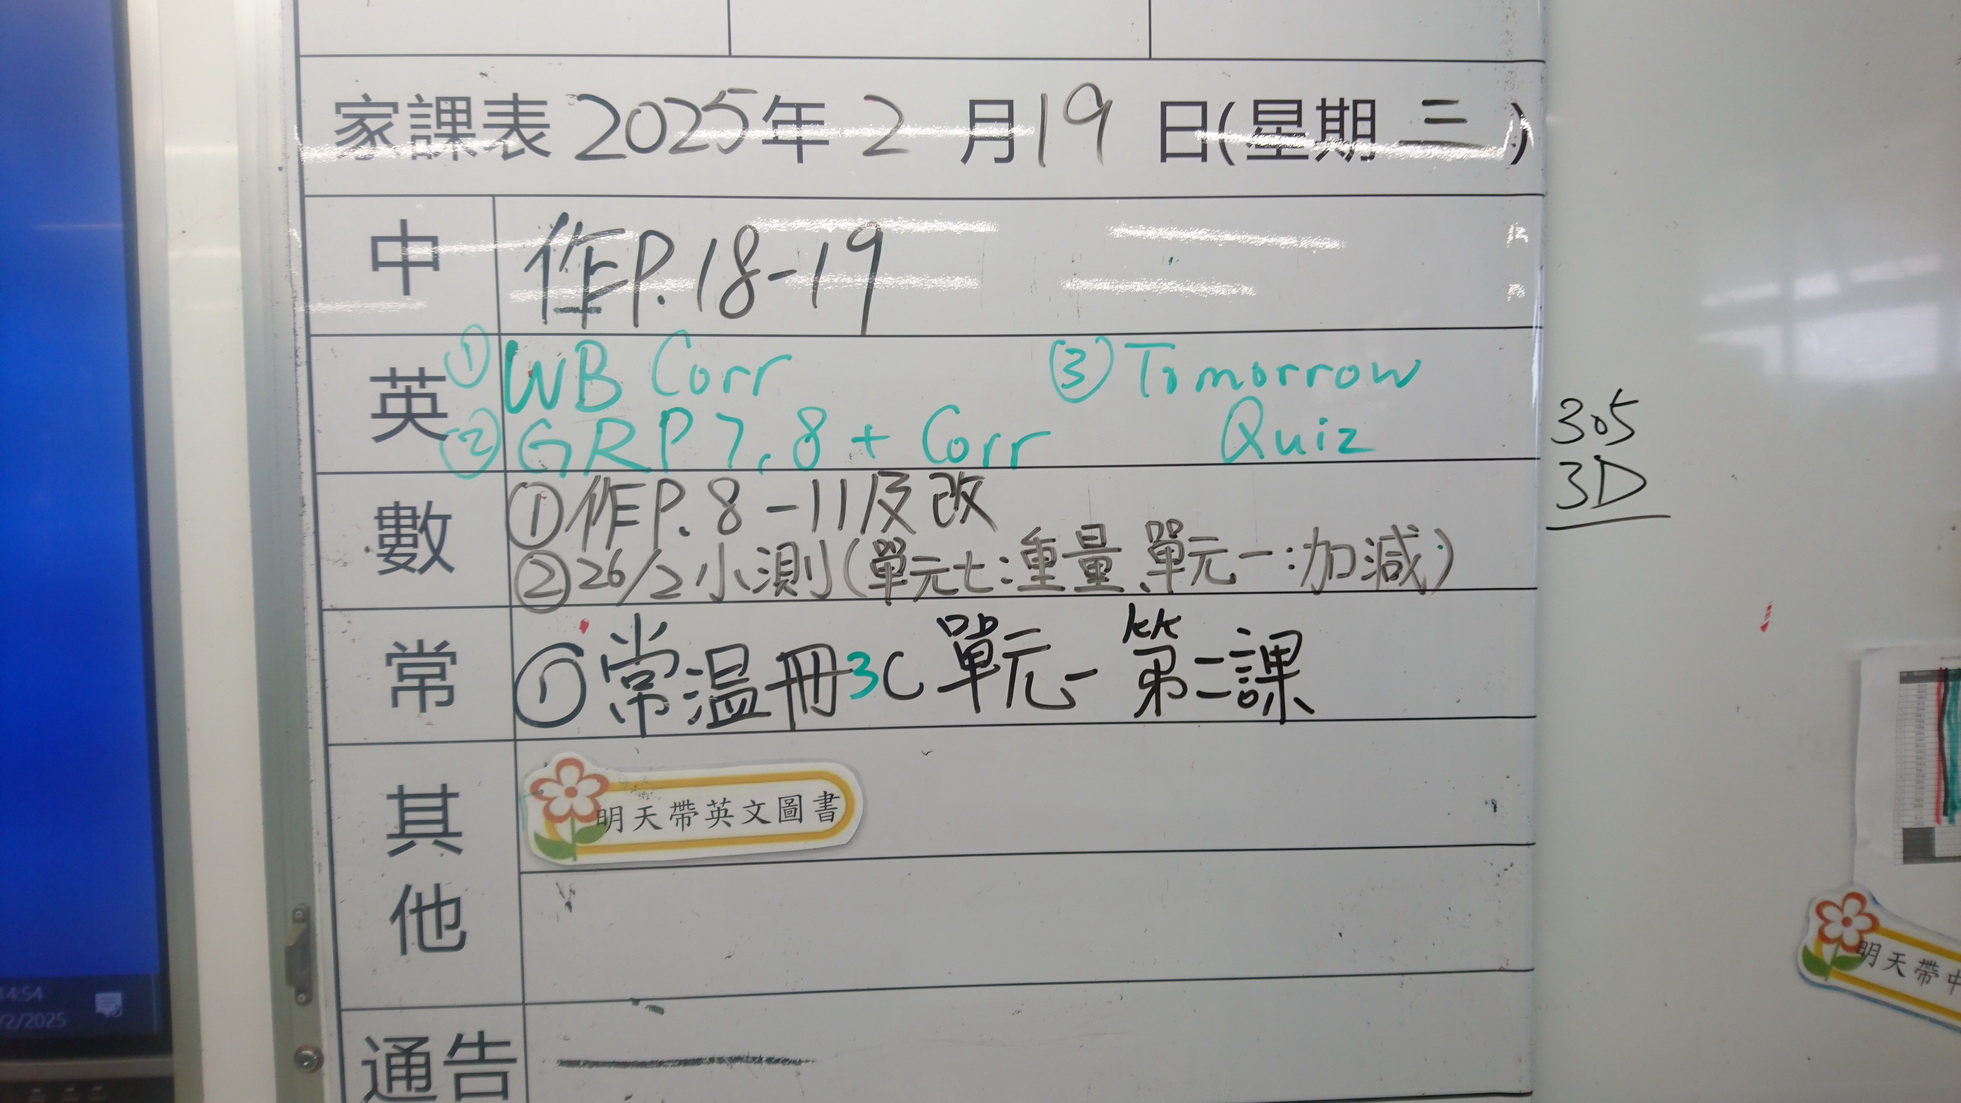 家課表 2025年 2 月 19 日(星期 三 )
中 作P.18-19
英 ① WB Corr ③ Tomorrow
② GRP7,8 + Corr Quiz
數 ①作P.8-11及改
②26/2小測(單元七:重量、單元一:加減)
常 ①常溫冊3C單元一 第二課
其他 明天帶英文圖書
通告
305
3D
明天帶中
14:54
/2/2025